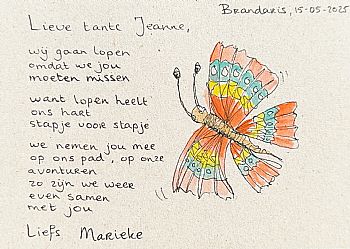 Brandaris, 15-05-2025
Lieve tante Jeanne,
wij gaan lopen
omdat we jou
moeten missen
want lopen heelt
ons hart
stapje voor stapje
we nemen jou mee
op ons pad, op onze
avonturen
zo zijn we weer
even samen
met jou
Liefs Marieke